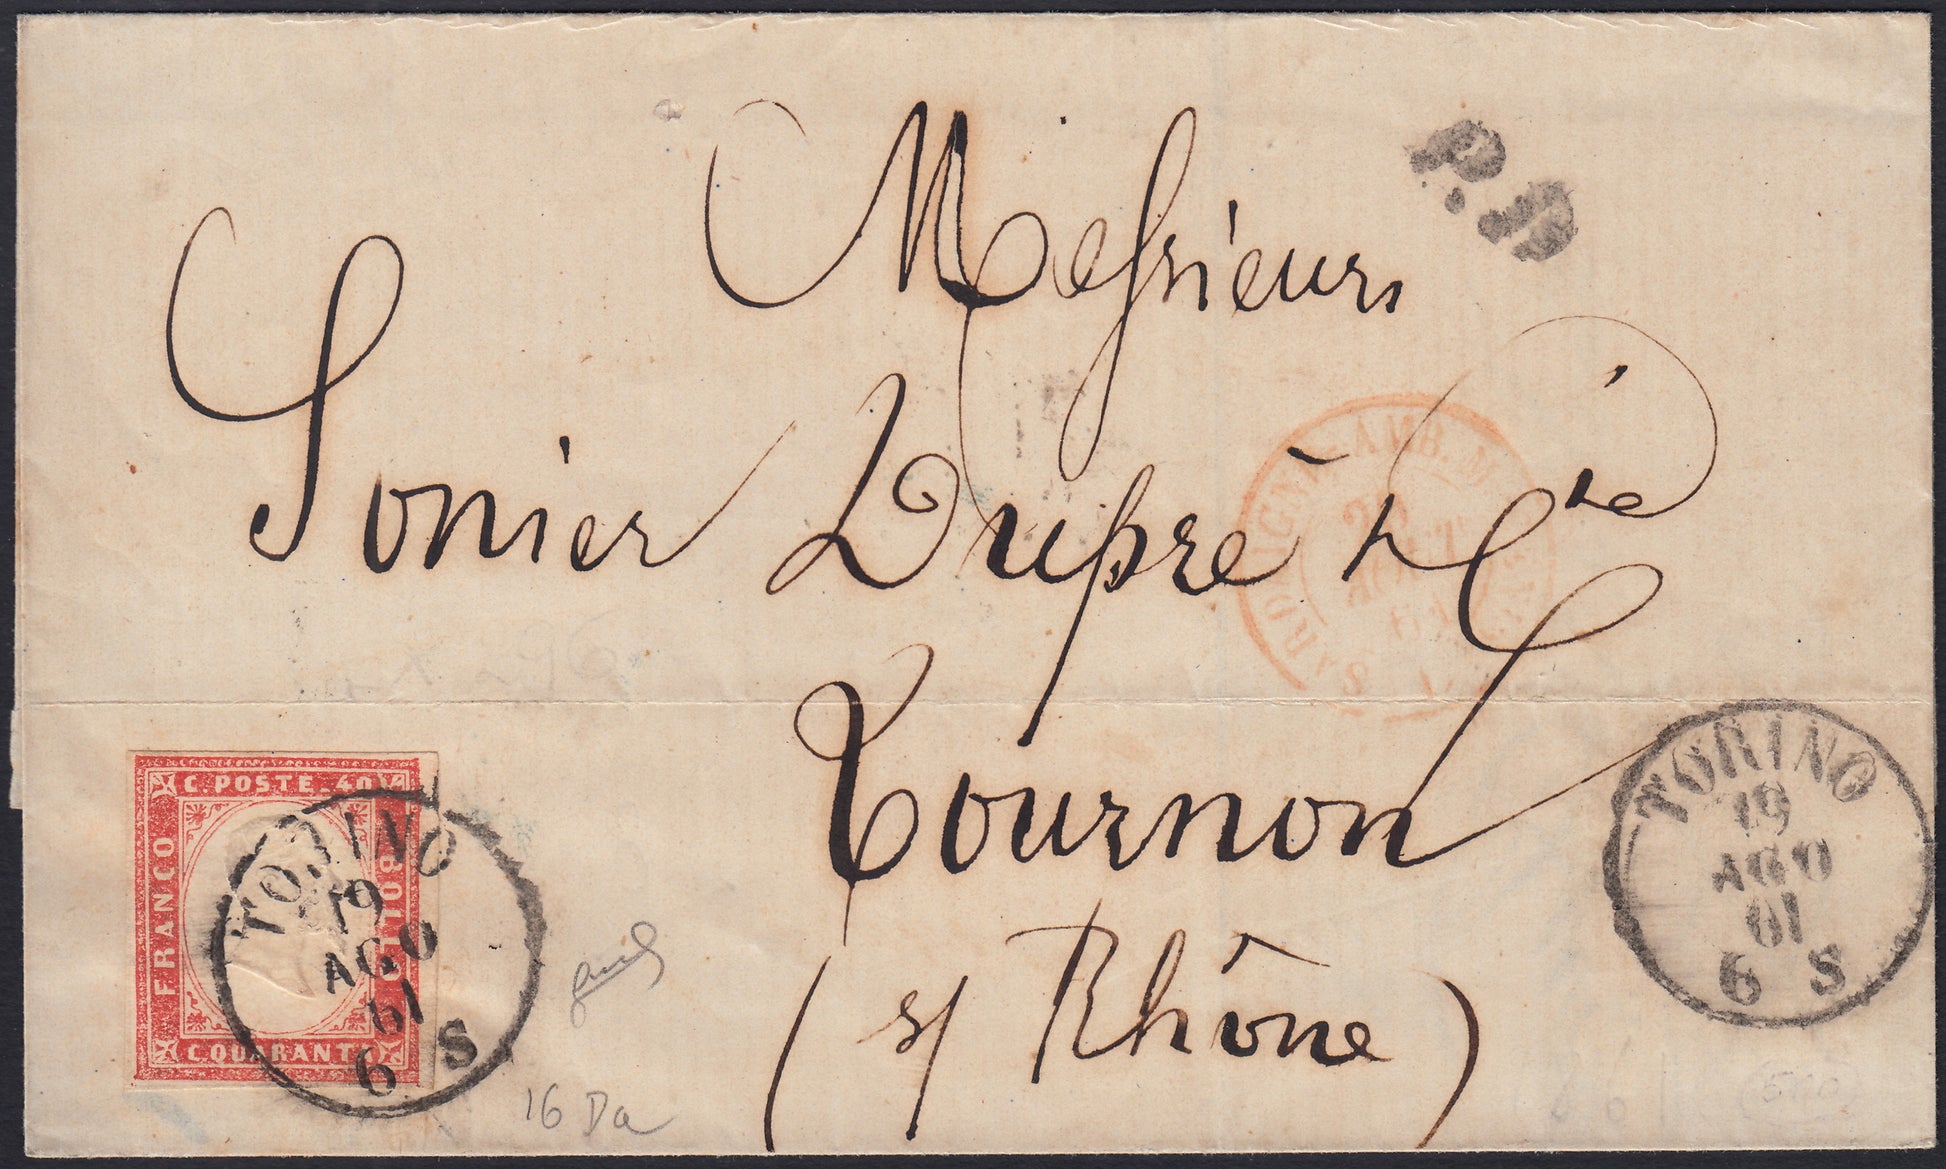 Messieurs
P.D.
Sonier Dupré & Cie
Tournon
(s/ Rhône)
C. POSTE. 40
FRANCO
BOLLO
QUARANTA
TORINO
19
AGO
61
6 S
SARDAIGNE AMB. M. CENIS
20
AOUT
61
TORINO
19
AGO
61
6 S
16 Da